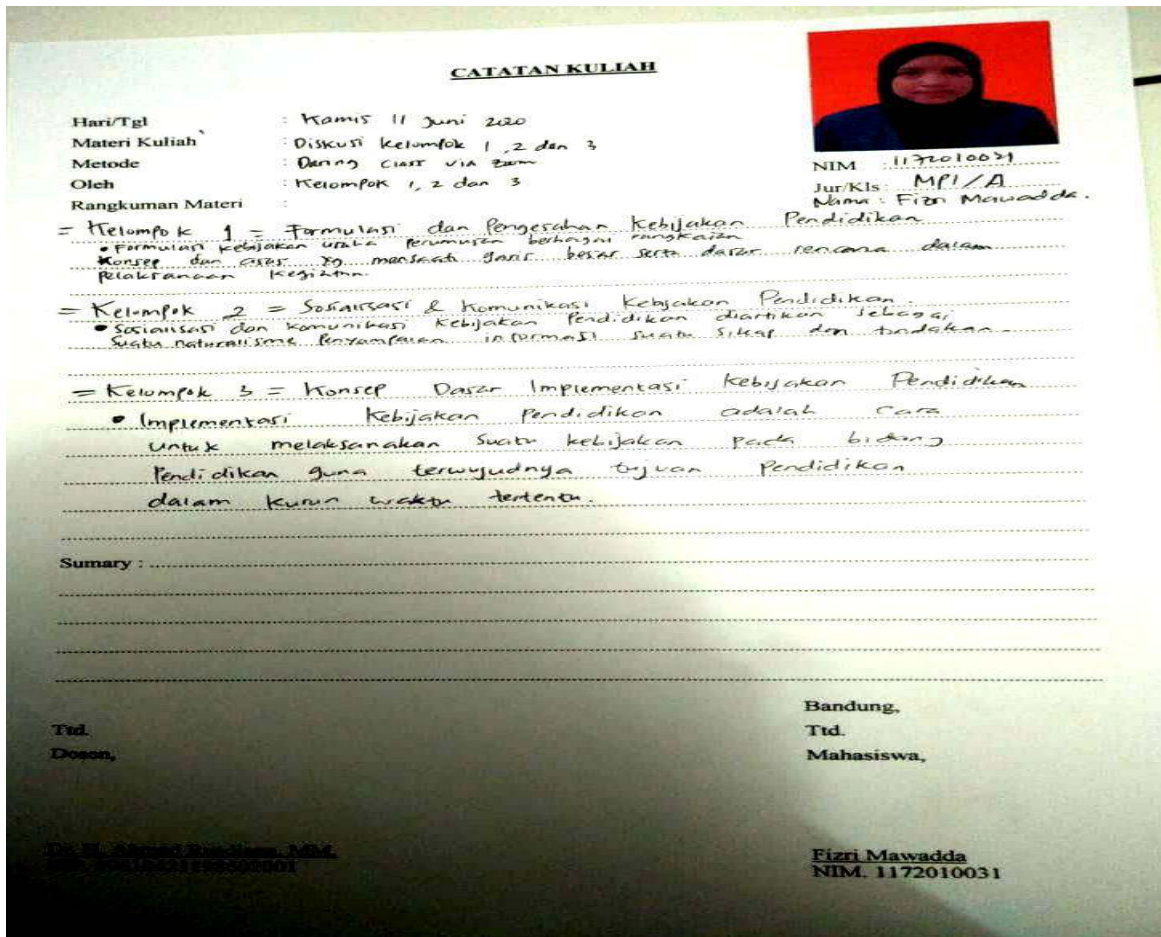 CATATAN KULIAH
Hari/Tgl : Kamis 11 Juni 2020
Materi Kuliah : Diskusi Kelompok 1, 2 dan 3
Metode : Daring Class VIA Zum
Oleh : Kelompok 1, 2 dan 3
Rangkuman Materi :
NIM : 1172010031
Jur/Kls : MPI/A
Nama : Fizri Mawadda.
= Kelompok 1 = Formulasi dan Pengesahan Kebijakan Pendidikan
• Formulasi Kebijakan usaha perumusan berbagai rangkaian
Konsep dan asas yg menjadi garis besar serta dasar rencana dalam
pelaksanaan Kegiatan.
= Kelompok 2 = Sosialisasi & Komunikasi Kebijakan Pendidikan.
• Sosialisasi dan komunikasi Kebijakan Pendidikan diartikan sebagai
Suatu naturalisme Penyampaian informasi suatu sikap dan tindakan.
= Kelompok 3 = Konsep Dasar Implementasi Kebijakan Pendidikan
• Implementasi Kebijakan Pendidikan adalah Cara
untuk melaksanakan Suatu kebijakan pada bidang
Pendidikan guna terwujudnya tujuan Pendidikan
dalam kurun waktu tertentu.
Sumary :
Bandung,
Ttd.
Ttd.
Dosen,
Mahasiswa,
Dr. H. MM.
Fizri Mawadda
NIM. 1172010031